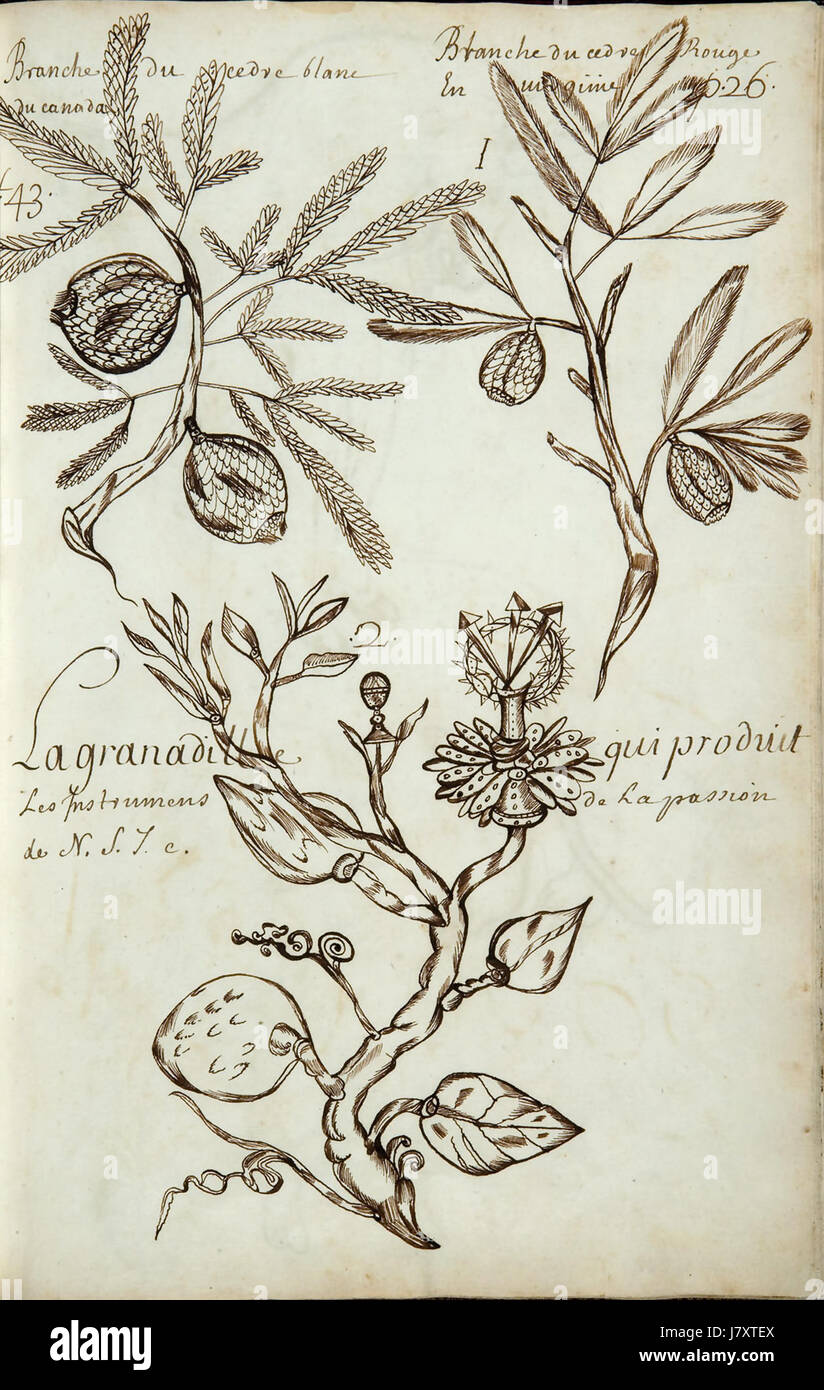 Branche du cedre blanc
du canada
43.
Branche du cedre Rouge
En virginie 26.
I
.2.
La granadille qui produit
Les Instrumens de La passion
de N. S. J. c.
alamy
alamy
alamy
alamy
a
a
a
a
alamy
Image ID: J7XTEX
www.alamy.com